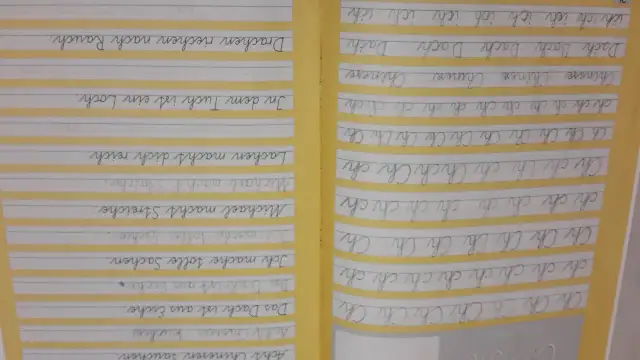 Ch Ch Ch Ch Ch Ch
ch ch ch ch ch ch ch
Ch Ch Ch Ch Ch Ch
ch ch ch ch ch ch ch
Ch ch Ch ch Ch ch
Ch Ch Ch Ch Ch Ch Ch
ch ch ch ch ch ch
Chinese Chinese Chinese Chinese
Dach Dach Dach Dach
ich ich ich ich ich ich
Acht Chinesen tauchen
Acht
Das Dach ist aus Eiche
Das Dach ist aus Eiche.
Ich mache tolle Sachen
Ich mache tolle Sachen.
Michael macht Streiche
Michael macht Streiche.
Lachen macht dich reich
In dem Tuch ist ein Loch.
Drachen riechen nach Rauch.